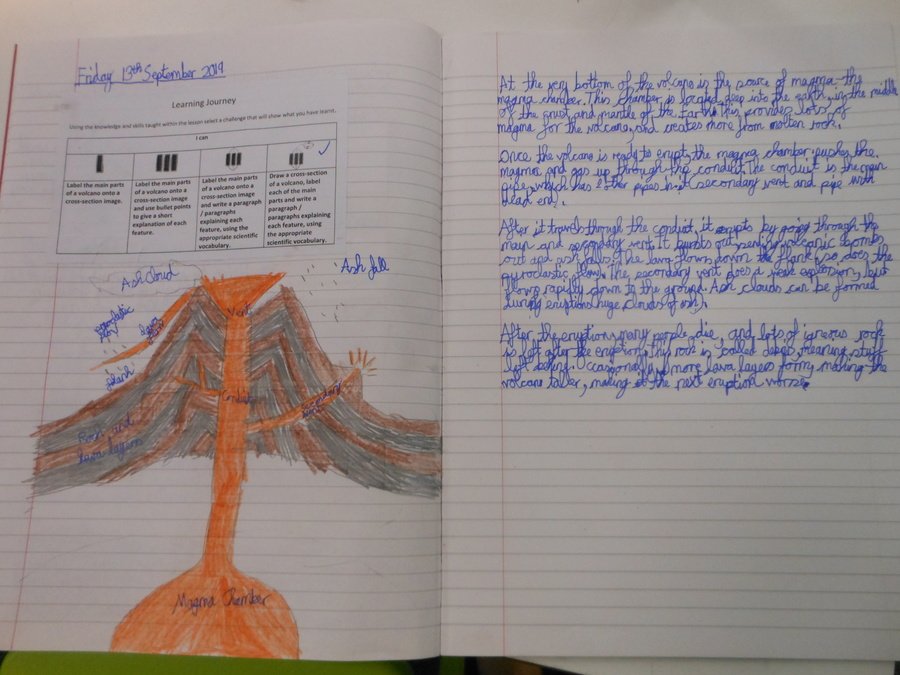 Friday 13th September 2019
Learning Journey
Using the knowledge and skills taught within the lesson select a challenge that will show what you have learnt.
I can
Label the main parts of a volcano onto a cross-section image.
Label the main parts of a volcano onto a cross-section image and use bullet points to give a short explanation of each feature.
Label the main parts of a volcano onto a cross-section image and write a paragraph / paragraphs explaining each feature, using the appropriate scientific vocabulary.
Draw a cross-section of a volcano, label each of the main parts and write a paragraph / paragraphs explaining each feature, using the appropriate scientific vocabulary.
Ash Cloud
Ash fall
Vent
lava
flank
Conduit
secondary
Rock and
lava layers
Magma Chamber
At the very bottom of the volcano is the source of magma-the
magma chamber. This chamber is located deep into the earth, in the middle
of the crust and mantle of the Earth. This provides lots of
magma for the volcano, and creates more from molten rock.
Once the volcano is ready to erupt, the magma chamber pushes the
magma and gas up through the conduit. The conduit is the main
pipe, which has 2 other pipes in it (secondary vent and pipe with
dead end).
After it travels through the conduit, it erupts by going through the
main and secondary vent. It bursts out sending volcanic bombs
out and ash falls. The lava flows down the flank, so does the
pyroclastic flow. The secondary vent does a weak explosion, but
flows rapidly down to the ground. Ash clouds can be formed
during eruptions (huge clouds of ash).
After the eruptions, many people die, and lots of igneous rock
is left after the eruption, this rock is called
left behind. Occasionally, more lava layers form, making the
volcano taller, making so the next eruption worse.